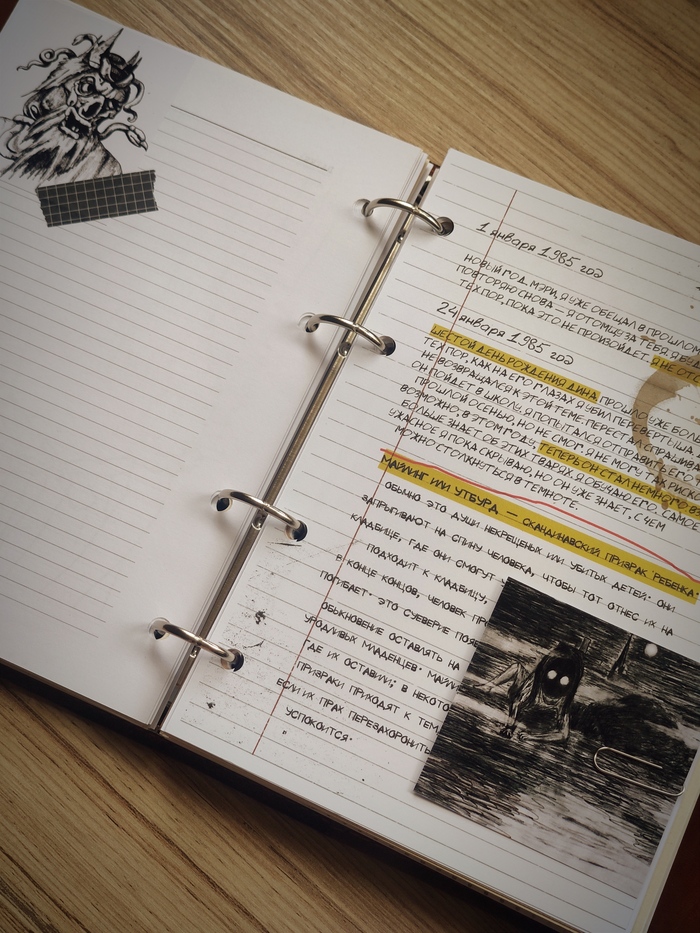 1 января 1985 год
НОВЫЙ ГОД. МЭРИ, Я УЖЕ ОБЕЩАЛ В ПРОШЛОМ
ПОВТОРЯЮ СНОВА — Я ОТОМЩУ ЗА ТЕБЯ
ТЕХ ПОР, ПОКА ЭТО НЕ ПРОИЗОЙДЕТ,
24 января 1985 год
ШЕСТОЙ ДЕНЬ РОЖДЕНИЯ ДИНА. ПРОШЛО УЖЕ БОЛ
ТЕХ ПОР, КАК НА ЕГО ГЛАЗАХ Я УБИЛ ПЕРЕВЕРТЫША.
НЕ ВОЗВРАЩАЛСЯ К ЭТОЙ ТЕМЕ. ПЕРЕСТАЛ СПРАШИВ
ОН ПОЙДЕТ В ШКОЛУ. Я ПОПЫТАЛСЯ ОТПРАВИТЬ ЕГО Т
ПРОШЛОЙ ОСЕНЬЮ, НО НЕ СМОГ. Я НЕ МОГУ ТАК РИСК
ВОЗМОЖНО, В ЭТОМ ГОДУ. ТЕПЕРЬ ОН СТАЛ НЕМНОГО ВЗ
БОЛЬШЕ ЗНАЕТ ОБ ЭТИХ ТВАРЯХ. Я ОБУЧАЮ ЕГО. САМОЕ
УЖАСНОЕ Я ПОКА СКРЫВАЮ, НО ОН УЖЕ ЗНАЕТ, С ЧЕМ
МОЖНО СТОЛКНУТЬСЯ В ТЕМНОТЕ.
МАЙЛИНГ ИЛИ УТБУРД — СКАНДИНАВСКИЙ ПРИЗРАК РЕБЕНКА.
ОБЫЧНО ЭТО ДУШИ НЕКРЕЩЕНЫХ ИЛИ УБИТЫХ ДЕТЕЙ. ОНИ
ЗАПРЫГИВАЮТ НА СПИНУ ЧЕЛОВЕКА, ЧТОБЫ ТОТ ОТНЕС ИХ НА
КЛАДБИЩЕ, ГДЕ ОНИ СМОГУТ
ПОДХОДИТ К КЛАДБИЩУ,
В КОНЦЕ КОНЦОВ, ЧЕЛОВЕК ПР
ПОГИБАЕТ. ЭТО СУЕВЕРИЕ ПОЯ
ОБЫКНОВЕНИЕ ОСТАВЛЯТЬ НА
УРОДЛИВЫХ МЛАДЕНЦЕВ. МАЙЛИ
ГДЕ ИХ ОСТАВИЛИ; В НЕКОТО
ПРИЗРАКИ ПРИХОДЯТ К ТЕМ,
ЕСЛИ ИХ ПРАХ ПЕРЕЗАХОРОНИТЬ
УСПОКОИТСЯ.